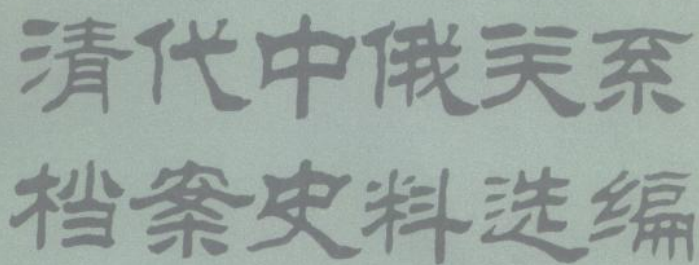 清代中俄关系
档案史料选编